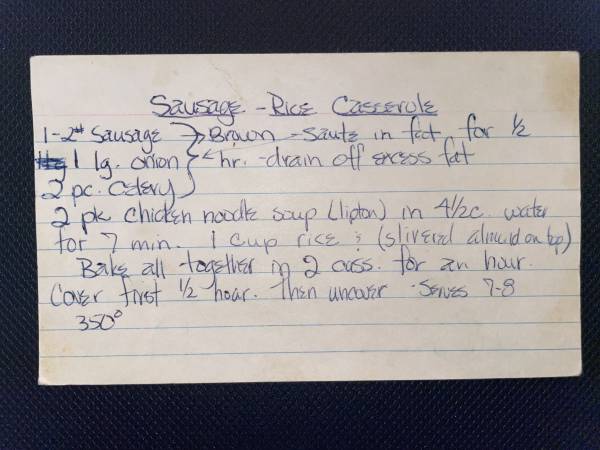 Sausage - Rice Casserole
1-2# Sausage } Brown - saute in fat for 1/2
1 lg. onion } hr. - drain off excess fat
2 pc. celery }
2 pk chicken noodle soup (lipton) in 4 1/2 c. water
for 7 min. 1 cup rice & (slivered almond on top)
Bake all together in 2 cass. for an hour.
Cover first 1/2 hour. Then uncover. Serves 7-8
350°